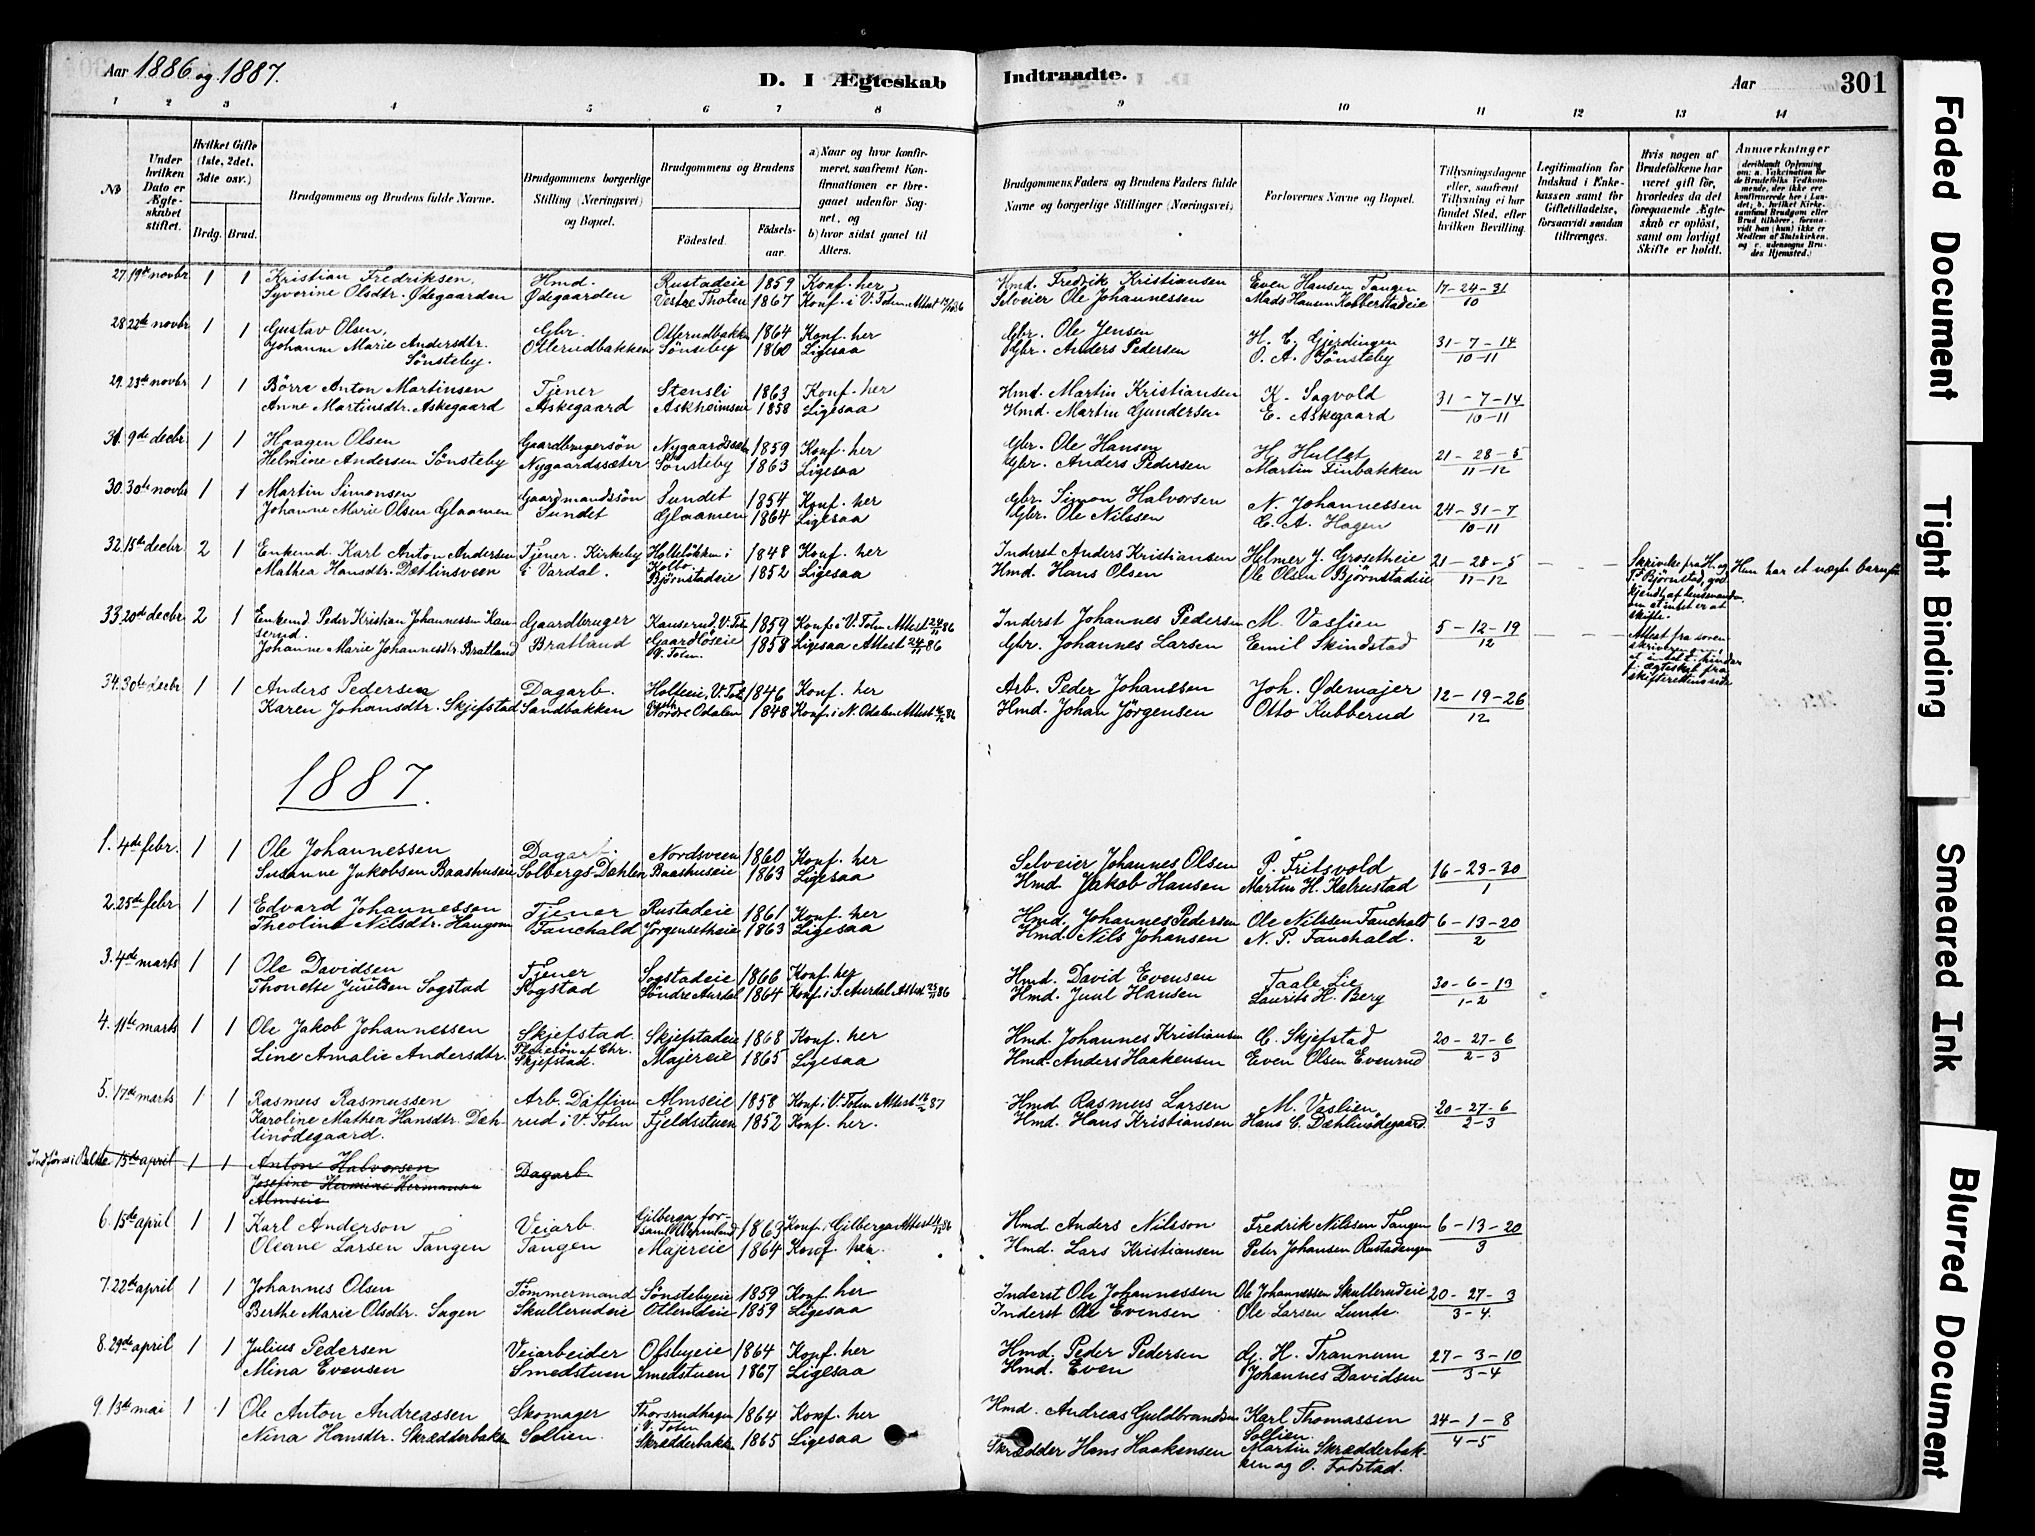 Aar 1886 og 1887.
D. I Ægteskab Indtraadte.
Aar 301
1 2 3 4 5 6 7 8 9 10 11 12 13 14
No
Under hvilken Dato er Ægteskabet stiftet.
Hvilket Gifte (1ste, 2det, 3die osv.)
Brdg. Brud.
Brudgommens og Brudens fulde Navne.
Brudgommens borgerlige Stilling (Næringsvei) og Bopæl.
Brudgommens og Brudens
Fødested. Fødselsaar.
a) Naar og hvor konfirmeret, saafremt Konfirmationen er foregaaet udenfor Sognet, og
b) hvor sidst gaaet til Alters.
Brudgommens Faders og Brudens Faders fulde Navne og borgerlige Stillinger (Næringsvei)
Forlovernes Navne og Bopæl.
Tillysningsdagene eller, saafremt Tillysning ei har fundet Sted, efter hvilken Bevilling.
Legitimation for Indskud i Enkekassen samt for Giftetilladelse, forsaavidt saadan tiltrænges.
Hvis nogen af Brudefolkene har været gift før, hvorledes da det foregaaende Ægteskab er opløst, samt om lovligt Skifte er holdt.
Anmærkninger
27. 19de novbr 1 1 Kristian Fredriksen, Hmd. Rustadeie 1859 Konf. her Hmd. Fredrik Kristiansen Even Hansen Tangen 17-24-31
Syverine Olsdtr. Ødegaarden Ødegaarden Vestre Thoten 1867 Konf. i V. Toten Attest Selveier Ole Johannessen Mads Hansen Kobberstadeie 10
28. 22de novbr 1 1 Gustav Olsen, Gbr. Otterudbakken 1864 Konf. her Gbr. Ole Jensen H. C. Gjerdingen 31-7-14
Johanne Marie Andersdtr. Otterudbakken Sønsteby 1860 Ligesaa Gbr. Anders Pedersen O. A. Sønsteby 10-11
Sønsteby.
29. 23de novbr 1 1 Børre Anton Martinsen Tjener Stensli 1863 Konf. her Hmd. Martin Kristiansen K. Sagvold 31-7-14
Anne Martinsdtr. Askegaard Askegaard Askheimseie 1858 Ligesaa Hmd. Martin Gundersen E. Askegaard 10-11
31. 9de decbr 1 1 Haagen Olsen Gaardbrugersøn Nygaardssæter 1859 Konf. her Gbr. Ole Hansen H. Hullet 21-28-5
Helmine Andersen Sønsteby Nygaardssæter Sønsteby 1863 Ligesaa Gbr. Anders Pedersen Martin Finbakken 11-12
30. 30te novbr 1 1 Martin Simensen Gaardmandssøn Sundet 1854 Konf. her Gbr. Simon Halvorsen N. Johannessen 24-31-7
Johanne Marie Olsen Glaamen Sundet Glaamen 1864 Ligesaa Gbr. Ole Nilssen C. A. Hagen 10-11
32. 15de decbr. 2 1 Enkemd. Karl Anton Andersen Tjener. Kirkeby Holteløkken i Kolbo 1848 Konf. her Inderst Anders Kristiansen Helmer J. Grosetheie 21-28-5
Mathea Hansdtr. Dætlinsveen i Vardal. Bjørnstadeie 1852 Ligesaa Hmd. Hans Olsen Ole Olsen Bjørnstadeie 11-12
Skrivelse fra H. og T. Bjørnstad, godkjendt af lensmanden om at intet er at skifte.
Hun har et uægte barn før
33. 20de decbr 2 1 Enkemd. Peder Kristian Johannessen Kanserud Gaardbruger Kanserud, V. Toten 1859 Konf. i V. Toten Attest 24/11 86 Inderst Johannes Pedersen M. Vaslien 5-12-19
Johanne Marie Johannesdtr. Bratland Bratland Gaardløseie V. Toten. 1858 Ligesaa Attest 24/11 86 Gbr. Johannes Larsen Emil Skindstad 12
Attest fra sorenskriveren, at intet hinder f. ægteskab fra skifterettens side
34. 30te decbr 1 1 Anders Pedersen Dagarb. Holteeie, V. Toten 1846 Konf. her Arb. Peder Johansen Joh. Ødemajer 12-19-26
Karen Johansdtr. Skjefstad Sandbakken Nordre Odalen 1848 Konf. i N. Odalen Attest Hmd. Johan Jørgensen Otto Kubberud 12
1887.
1. 4de febr. 1 1 Ole Johannessen Dagarb. Nordsveen 1860 Konf. her Selveier Johannes Olsen P. Fritsvold 16-23-30
Susanne Jakobsen Baashuseie Solbergs-Dæhlen Baashuseie 1863 Ligesaa Hmd. Jakob Hansen Martin H. Kalrustad 1
2. 25de febr 1 1 Edvard Johannessen Tjener Rustadeie 1861 Konf. her Hmd. Johannes Pedersen Ole Nilssen Fauchald 6-13-20
Theoline Nilsdtr. Haugom Fauchald Jørgensetheie 1863 Ligesaa Hmd. Nils Johansen N. P. Fauchald. 2
3. 4de marts 1 1 Ole Davidsen Tjener Sogstadeie 1866 Konf. her Hmd. David Evensen Taale Lie 30-6-13
Thonette Juulsen Sogstad Sogstad Søndre Aurdal 1864 Konf. i S. Aurdal Attest 25/11 86 Hmd. Juul Hansen Laurits H. Berg 1-2
4. 11te marts 1 1 Ole Jakob Johannessen Skjefstad. Skjefstadeie 1868 Konf. her Hmd. Johannes Kristiansen C. Skjefstad 20-27-6
Line Amalie Andersdtr. Pleiesøn af Chr. Skjefstad. Majereie 1865 Ligesaa Hmd. Anders Haakensen Even Olsen Evenrud 2-3
5. 17de marts 1 1 Rasmus Rasmussen Arb. Diffin Almseie 1858 Konf. i V. Toten Attest 87 Hmd. Rasmus Larsen M. Vaslien, 20-27-6
Karoline Mathea Hansdtr. Dæhlinødegaard. rud i V. Toten Fjeldsstuen 1852 Konf. her. Hmd. Hans Kristiansen Hans C. Dæhlinødegaard. 2-3
Indføres i Balke 15de april 1 1 Anton Halvorsen Dagarb
Josefine Hermine Hermansen
Almseie
6. 15de april 1 1 Karl Anderson Veiarb. Gilberga forsaml. Wermland 1863 Konf. i Gilberga Attest 86 Hmd Anders Nilsson Fredrik Nilssen Tangen 6-13-20
Oleane Larsen Tangen Tangen Majereie 1864 Konf. her. Hmd. Lars Kristiansen Peter Johansen Rustadengen 3
7. 22de april 1 1 Johannes Olsen Tømmermand Sønstebyeie 1859 Konf her Inderst Ole Johannessen Ole Johannessen Skullerudeie 20-27-3
Berthe Marie Olsdtr. Sagen Skullerudeie Otterudeie 1859 Ligesaa Inderst Ole Evensen Ole Larsen Lunde. 3-4.
8. 29de april 1 1 Julius Pedersen Veiarbeider Ofsbyeie 1864 Konf. her Hmd. Peder Pedersen G. H. Trannum 27-3-10
Mina Evensen Smedstuen Smedstuen 1867 Ligesaa Hmd. Even Johannes Davidsen 3-4
9. 13de mai 1 1 Ole Anton Andreassen Skomager Thorsrudhagen i V. Toten 1864 Konf. her Hmd. Andreas Guldbrandsen Karl Thomassen Sollien. 24-1-8
Nina Hansdtr. Skrædderbakken Sollien. Skrædderbakken 1865 Ligesaa Skrædder Hans Haakensen Martin Skrædderbakken og O. Fodstad. 4-5
Faded Document
Tight Binding
Smeared Ink
Blurred Document